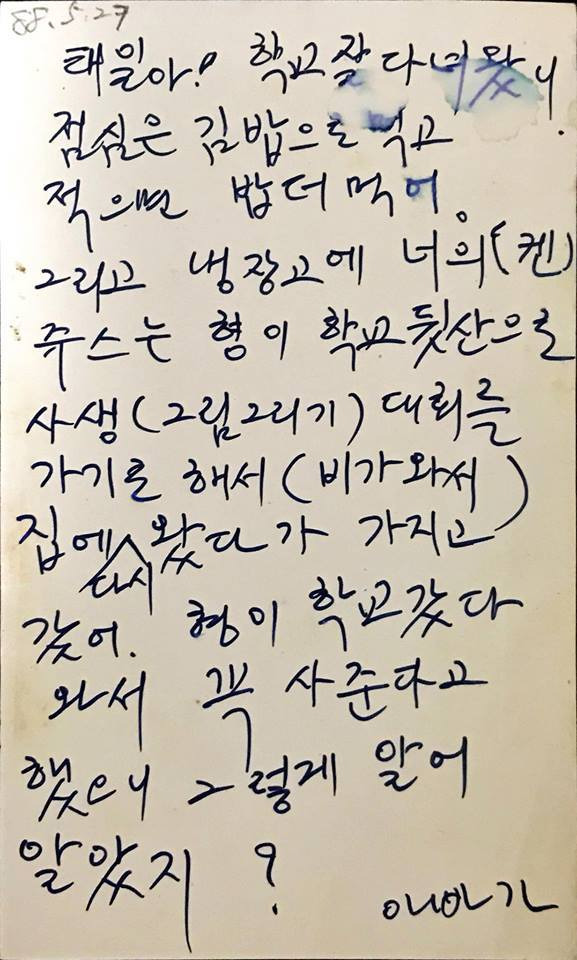 88.5.27
태일아! 학교 잘 다녀왔니
점심은 김밥으로 먹고
적으면 밥 더 먹어.
그리고 냉장고에 너의(켄)
쥬스는 형이 학교 뒷산으로
사생(그림그리기) 대회를
가기로 해서(비가와서)
집에 다시 왔다가 가지고
갔어. 형이 학교갔다
와서 꼭 사준다고
했으니 그렇게 알어
알았지?